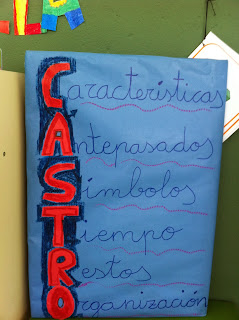 Características
Antepasados
Símbolos
Tiempo
Restos
Organización